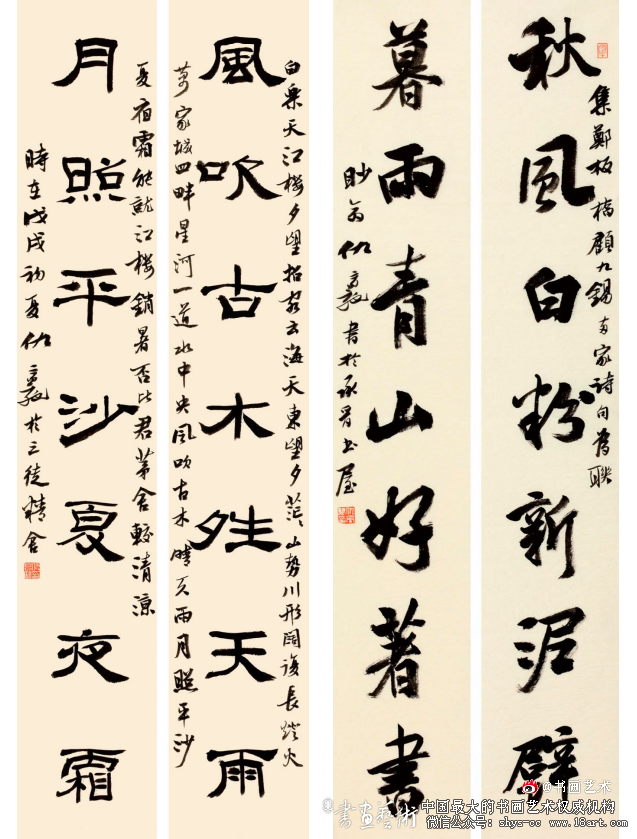 秋風白粉新泥壁
集鄭板橋顧九錫兩家诗句為聯
暮雨青山好著書
眇翁仇書於書屋
白樂天江樓夕望招客云海天東望夕茫、山勢川形闊復長燈火
風吹古木夝天雨
萬家城四畔星河一道水中央風吹古木晴天雨月照平沙
夏夜霜能就江樓銷暑否比君茅舍較清涼
月照平沙夏夜霜
時在戊戌初夏仇於三徒精舍
@书画艺术
書畫藝術
中国最大的书画艺术权威机构
微信公众号：shys-cc www.18art.com